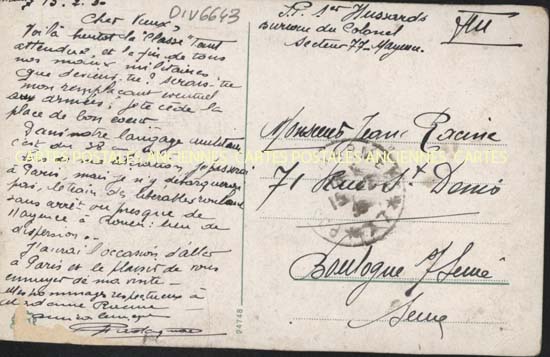 15.2.30
DIV6643
Cher Vieux
Voilà bientôt la "Classe" tant
attendue et la fin de tous
nos maux militaires
Que deviens-tu? Serais-tu
mon remplaçant éventuel
aux armées; je te cède la
place de bon coeur
Dans notre langage militaire
c'est du 38 au
à Paris mais je n'y débarquerai
pas, le train des libérables roulant
sans arrêt ou presque de
Mayence à Rouen: lieu de
dispersion.
J'aurai l'occasion d'aller
à Paris et le plaisir de vous
ennuyer de ma visite
Mes hommages respectueux à
Madame Racine
F.M
Hussards
Bureau du Colonel
Secteur 77. Mayence.
Monsieur Jean Racine
71 Rue St Denis
Boulogne s/Seine
Seine
CARTES POSTALES ANCIENNES CARTES POSTALES ANCIENNES CARTES
94748